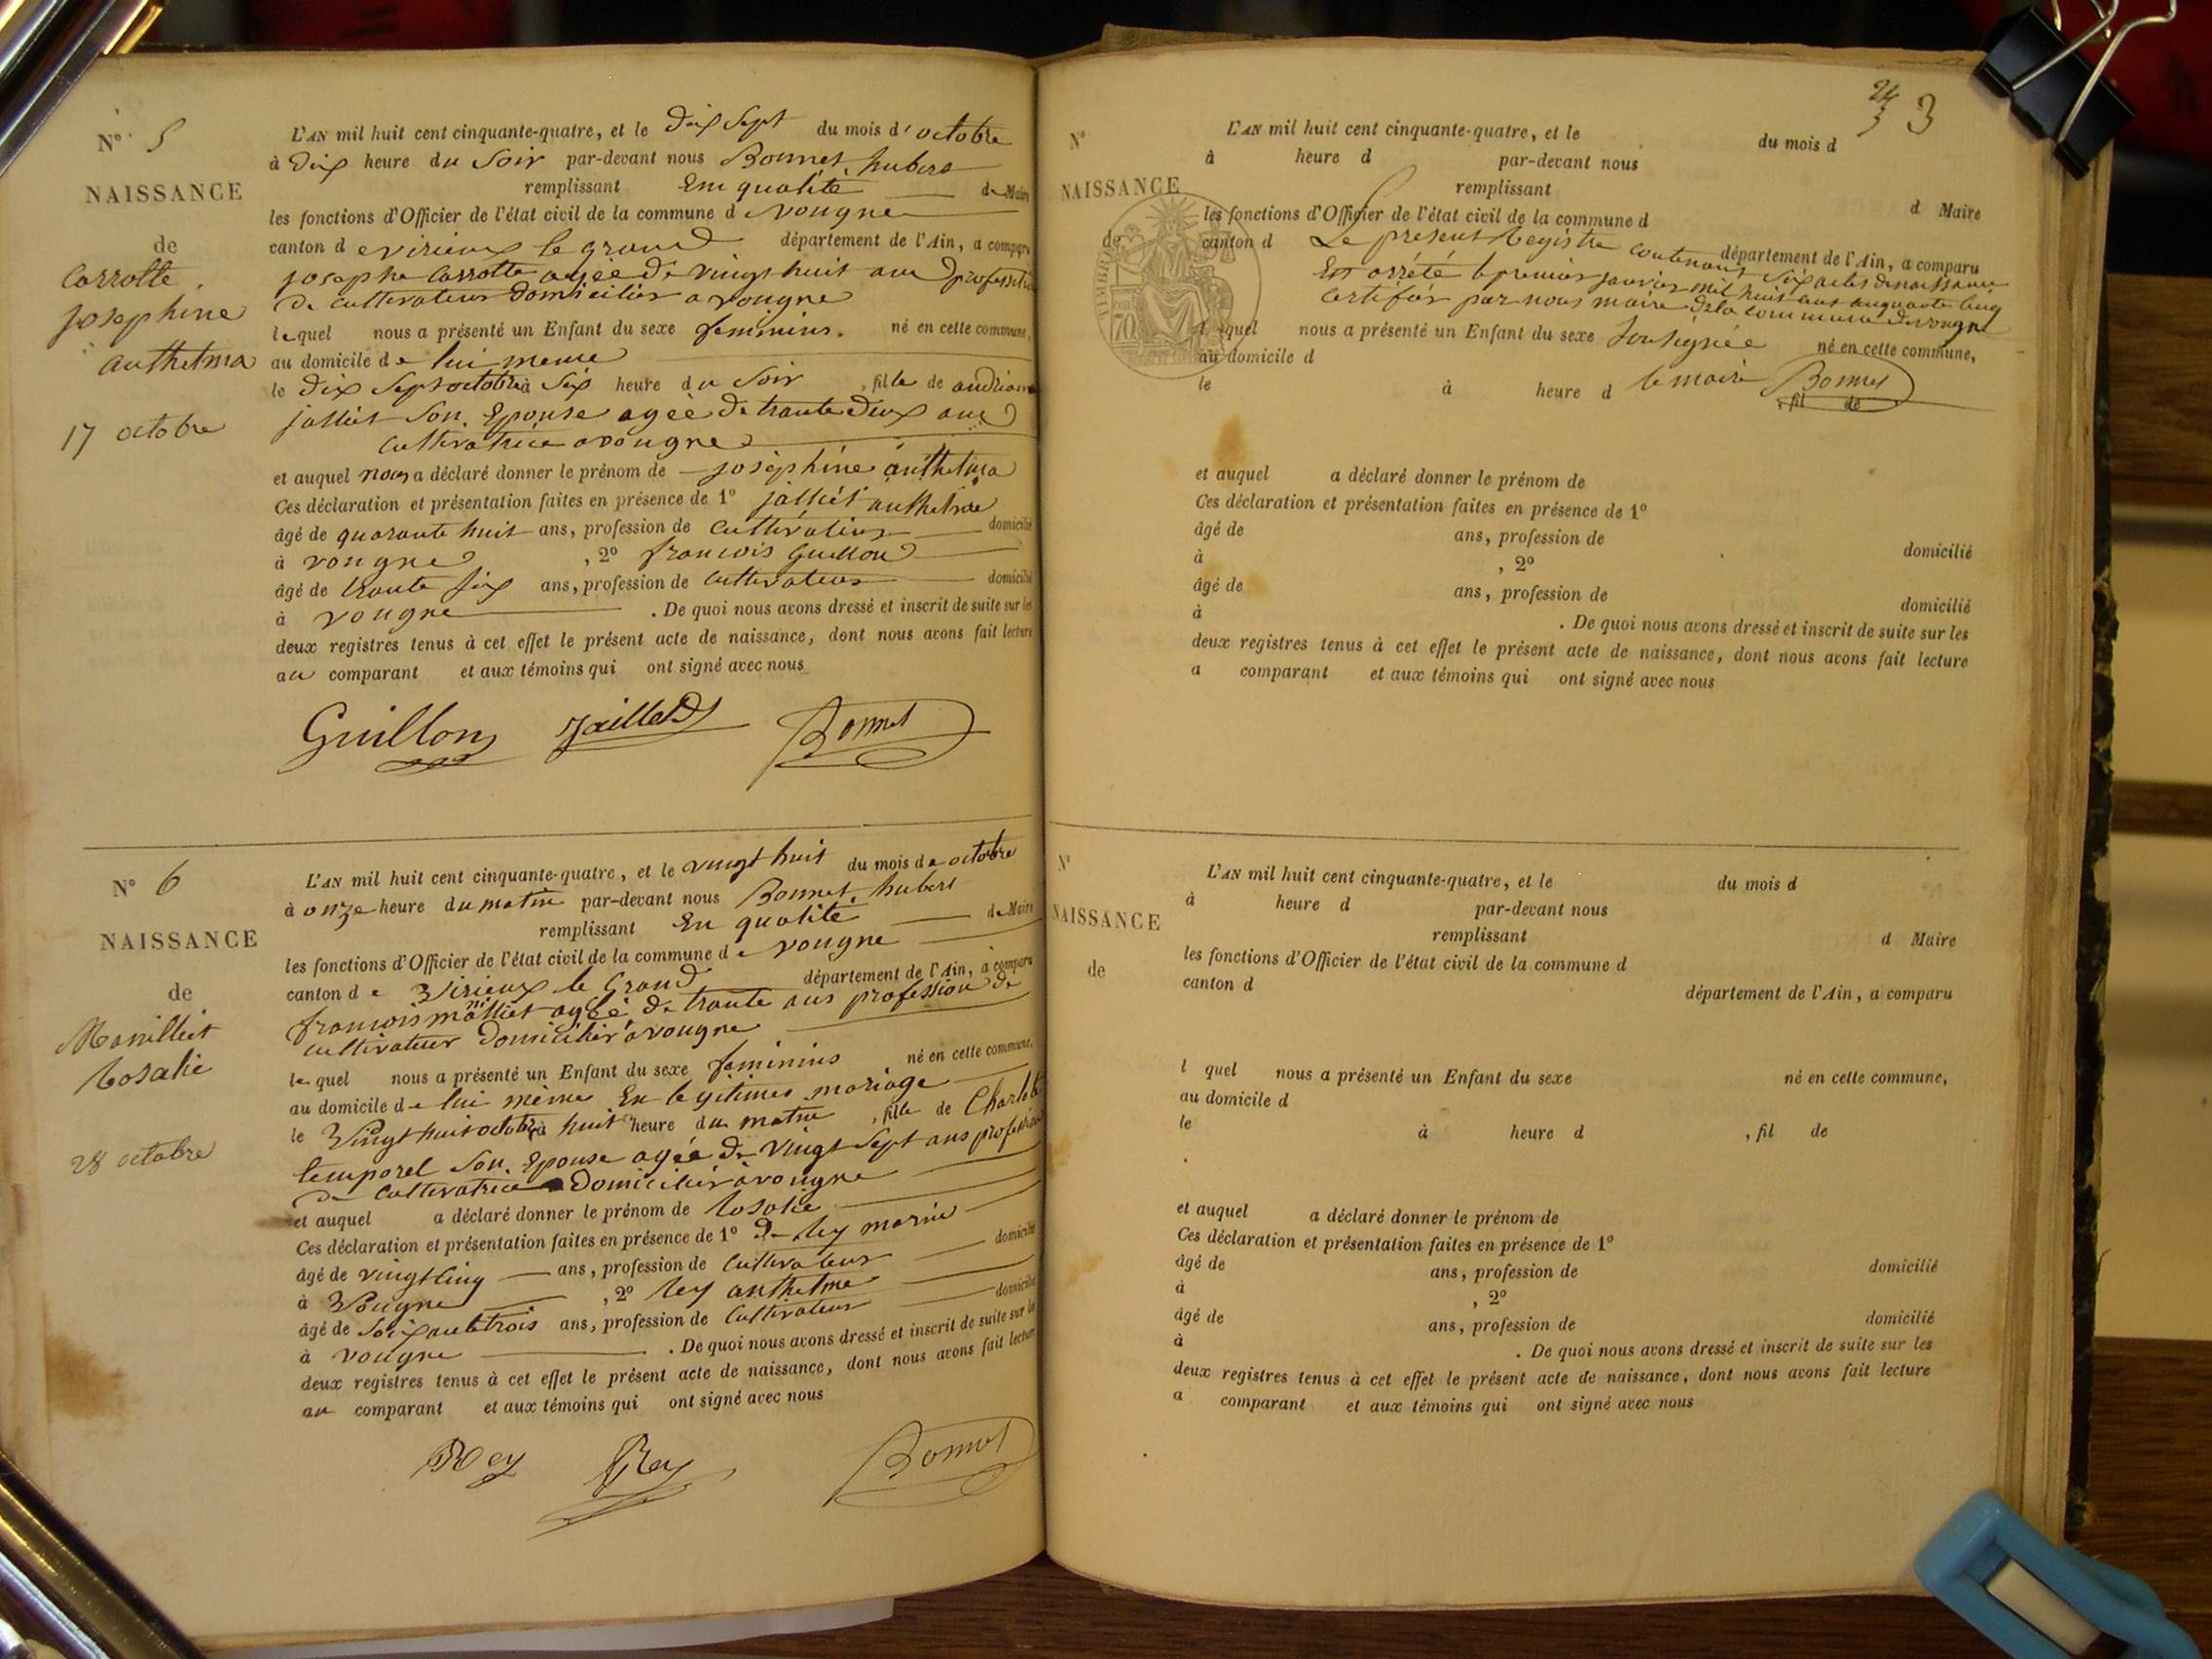 N° 5
NAISSANCE
de
Carrotte
josephine
anthelma
17 octobre
L'AN mil huit cent cinquante-quatre, et le Dix Sept du mois d'octobre
à Dix heure du Soir par-devant nous Bonnet hubert
remplissant En qualité de Maire
les fonctions d'Officier de l'état civil de la commune de vongne
canton de virieux le grand département de l'Ain, a comparu
josephe Carrotte agée de vingt huit ans profession
de cultivateur domicilier a vongne
lequel nous a présenté un Enfant du sexe feminins. né en cette commune,
au domicile de lui meme
le dix Sept octobre à Six heure du Soir, fille de
jalliet Son Epouse agée de trante deux ans
cultivatrice a vongne
et auquel nous a déclaré donner le prénom de josephine anthelma
Ces déclaration et présentation faites en présence de 1° jalliet anthelme
âgé de quarante huit ans, profession de cultivateur domicilié
à vongne, 2° francois Guillon
âgé de trante six ans, profession de cultivateur domicilié
à vongne. De quoi nous avons dressé et inscrit de suite sur les
deux registres tenus à cet effet le présent acte de naissance, dont nous avons fait lecture
au comparant et aux témoins qui ont signé avec nous
Guillon Jaillet Bonnet
N° 6
NAISSANCE
de
Manilliet
Rosalie
28 octobre
L'AN mil huit cent cinquante-quatre, et le vingt huit du mois de octobre
à onze heure du matin par-devant nous Bonnet hubert
remplissant En qualité de Maire
les fonctions d'Officier de l'état civil de la commune de vongne
canton de Virieux le Grand département de l'Ain, a comparu
francois agée de trante ans profession de
cultivateur Domicilier a vongne
lequel nous a présenté un Enfant du sexe feminins né en cette commune,
au domicile de lui même En legitimes mariage
le Vingt huit octobre à huit heure du matin, fille de Charlotte
temporel Son Epouse agée de vingt Sept ans profession
De cultivatrice Domicilier a vongne
et auquel a déclaré donner le prénom de Rosalie
Ces déclaration et présentation faites en présence de 1° De Rey marin
âgé de vingt cinq ans, profession de Cultivateur domicilié
à Vongne, 2° Rey anthelme
âgé de Soixante trois ans, profession de Cultivateur domicilié
à vongne. De quoi nous avons dressé et inscrit de suite sur les
deux registres tenus à cet effet le présent acte de naissance, dont nous avons fait lecture
au comparant et aux témoins qui ont signé avec nous
Rey Rey Bonnet
3
N°
NAISSANCE
de
L'AN mil huit cent cinquante-quatre, et le du mois d
à heure d par-devant nous
remplissant d Maire
les fonctions d'Officier de l'état civil de la commune d
canton d département de l'Ain, a comparu
Le present Registre contenant Six actes de naissances
Est arrété le premier janvier mil huit cent cinquante cinq
certifier par nous maire de la commune de vongne
Soussignée
le maire Bonnet
l quel nous a présenté un Enfant du sexe né en cette commune,
au domicile d
le à heure d , fil de
et auquel a déclaré donner le prénom de
Ces déclaration et présentation faites en présence de 1°
âgé de ans, profession de domicilié
à , 2°
âgé de ans, profession de domicilié
à . De quoi nous avons dressé et inscrit de suite sur les
deux registres tenus à cet effet le présent acte de naissance, dont nous avons fait lecture
a comparant et aux témoins qui ont signé avec nous
N°
NAISSANCE
de
L'AN mil huit cent cinquante-quatre, et le du mois d
à heure d par-devant nous
remplissant d Maire
les fonctions d'Officier de l'état civil de la commune d
canton d département de l'Ain, a comparu
l quel nous a présenté un Enfant du sexe né en cette commune,
au domicile d
le à heure d , fil de
et auquel a déclaré donner le prénom de
Ces déclaration et présentation faites en présence de 1°
âgé de ans, profession de domicilié
à , 2°
âgé de ans, profession de domicilié
à . De quoi nous avons dressé et inscrit de suite sur les
deux registres tenus à cet effet le présent acte de naissance, dont nous avons fait lecture
a comparant et aux témoins qui ont signé avec nous